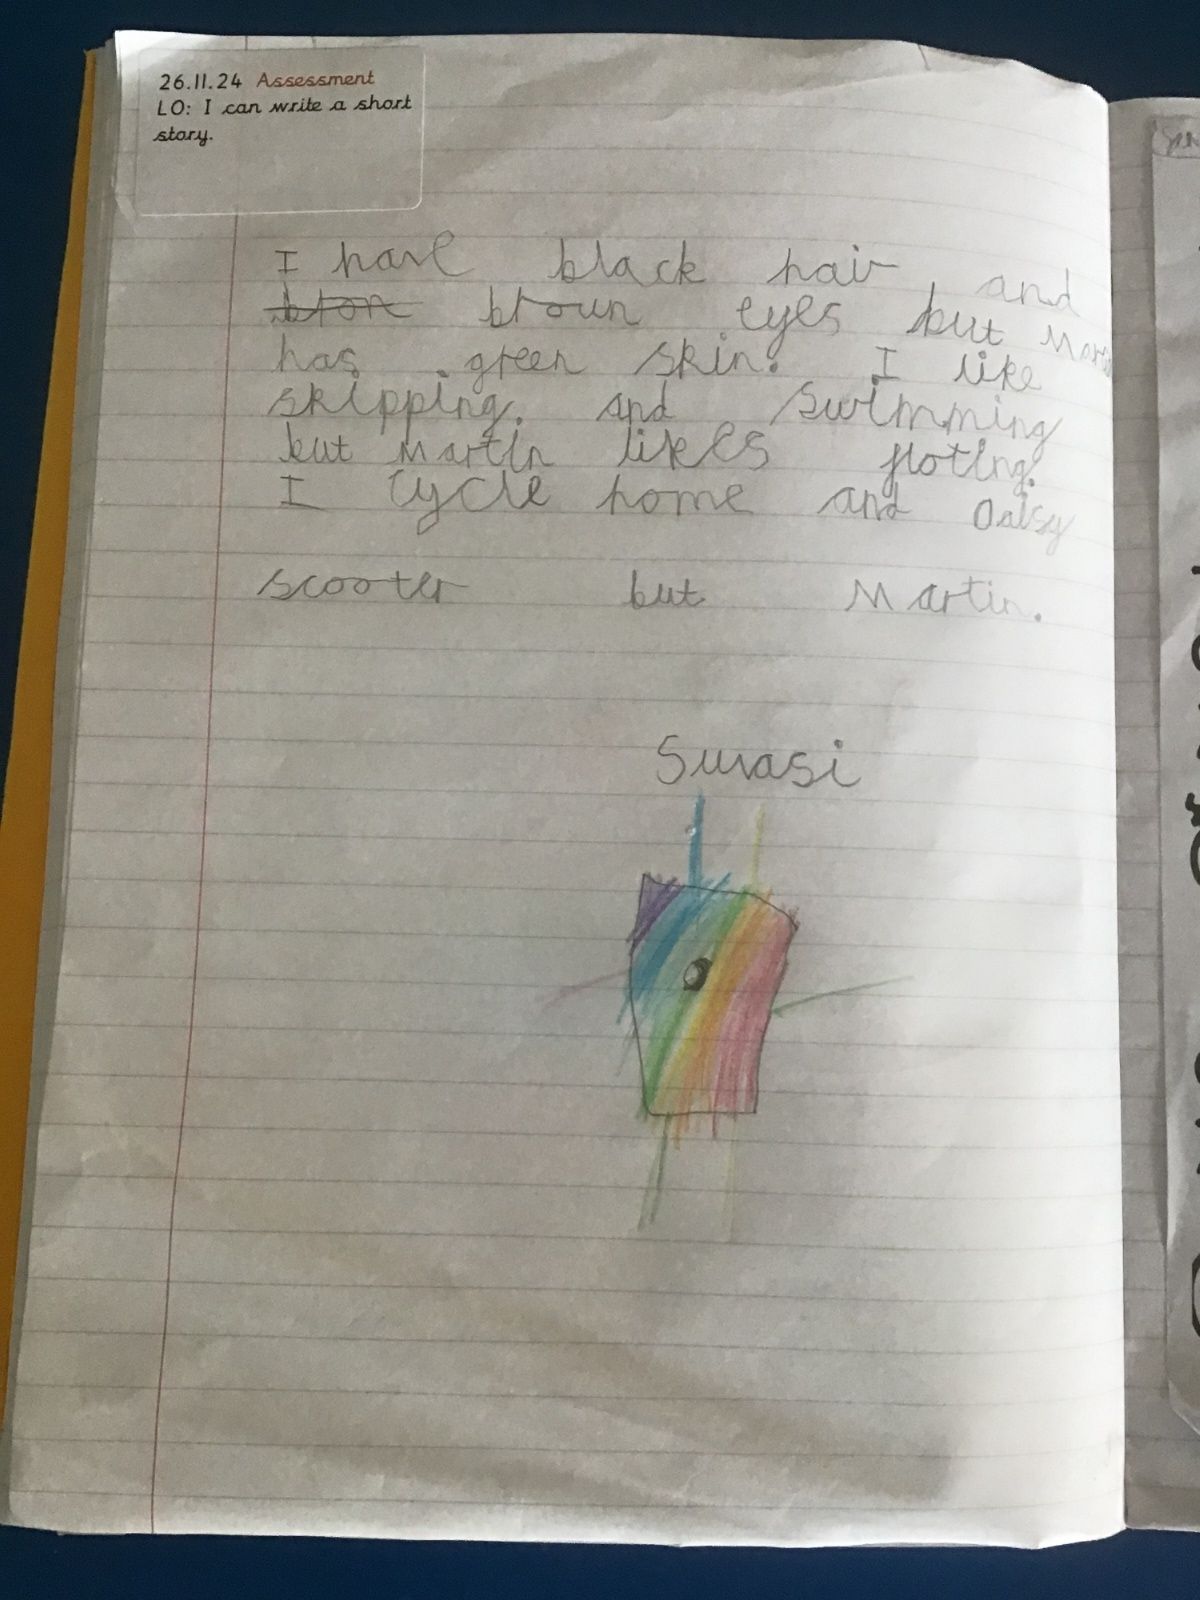 26.11.24 Assessment
LO: I can write a short
story.
I have black hair and
bron broun eyes but Martin
has green skin. I like
skipping. and swimming
but Martin likes floting.
I cycle home and Daisy
scooter but Martin.
Suvasi